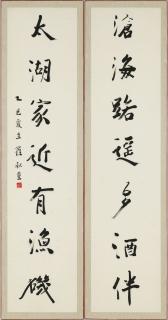 滄海路遥多酒伴
太湖家近有漁磯
乙巳夏五羅叔重